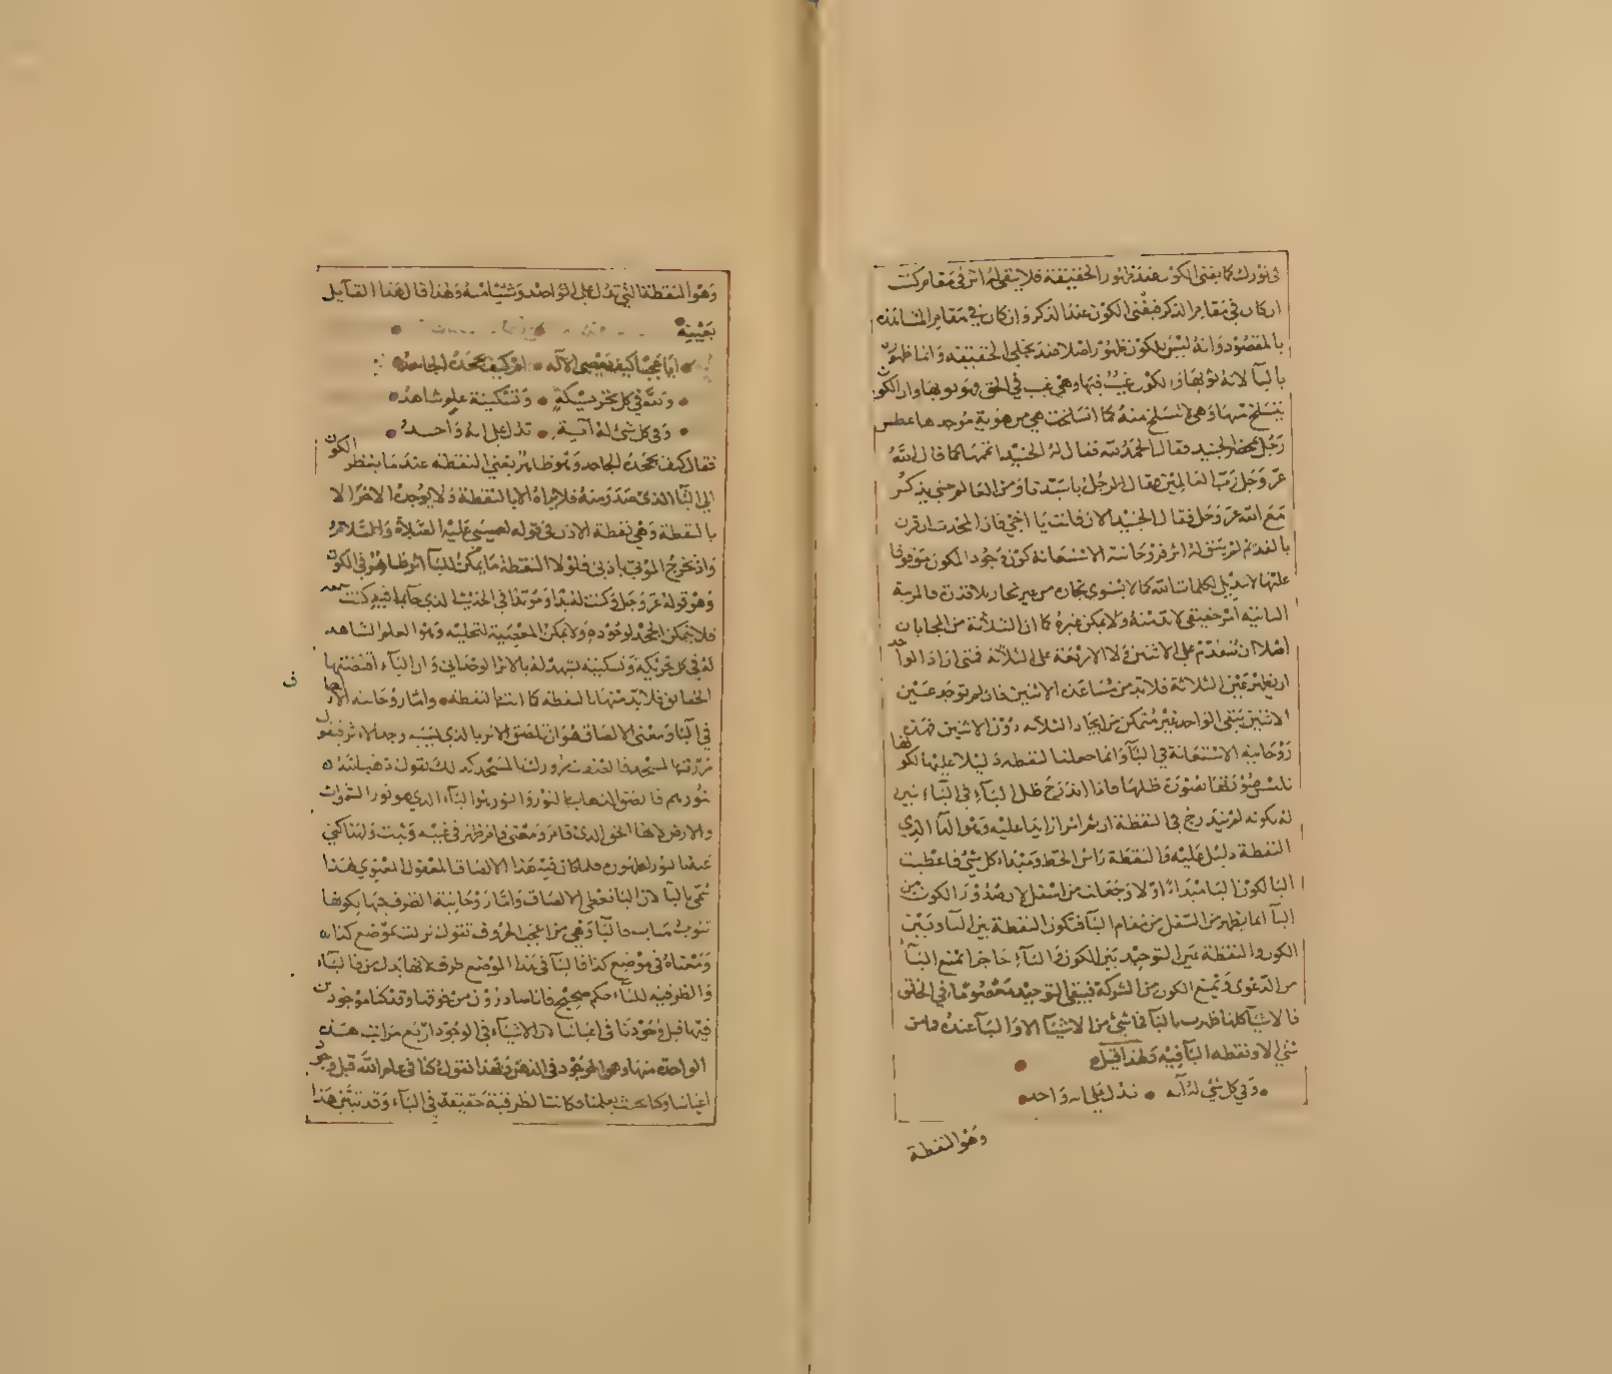 في نورك كما يفنى الكون عند ظهور الحقيقة فلا يبقى له اثر في مقام كنت
ان كان في مقام الذكر فيفنى الكون عند الذكر وان كان في مقام المشاهدة
بالمقصود وانه ليس للكون ظهور اصلا عند تجلي الحقيقة وانما ظهوره
بالبآ لانه ثوبها فالكون غيب فيها وهي غيب في الحق وهو ثوبها وان الكون
ينسلخ منها وهي لا تنسلخ منه كما انسلخت هي من هوية موجدها عطس
رجل بحضرة الجنيد فقال الحمد لله فقال له الجنيد اتمها كما قال الله
عز وجل رب العالمين فقال الرجل يا سيدنا ومن العالم حتى يذكر
مع الله عز وجل فقال الجنيد الان قلت يا اخي فان المحدث ان قرن
بالقديم لم يبق له اثر فروحانية الاستعانة كون وجود المكون موقوفا
عليها لا تبديل لكلمات الله كما لا يستوي نجار من غير نجار بلا قدرة فالمرتبة
الثانية امر حقيقي لا بد منه ولا يمكن غيره كما ان الثلاثة من المحال ان
اصلا ان تتقدم على الاثنين ولا الاربعة على الثلاثة فمتى اراد الواحد
ان يظهر عين الثلاثة فلا بد من مساعدة الاثنين فان لم توجد عين
الاثنين بقي الواحد غير متمكن من ايجاد الثلاثة دون الاثنين فهذه
روحانية الاستعانة في البآ وانما جعلنا النقطة دليلا عليها لكونها
ليست صورتها بصورة ظلها فاذا اندرج ظل البآء في البآء تبين
له بكونه لم يندرج في النقطة ان ثم امرا زايدا عليه وهو البآ الذي
النقطة دليل عليه والنقطة راس الخط ومبداء كل شي فاعطيت
البآ لكون البآ مبداء اولا وجعلت من اسفل لان صدور الكون من
البآ انما يظهر من السفل من مقام البآ فتكون النقطة بين البآ وبين
الكون والنقطة عين التوحيد بين الكون والبآء حاجزا تمنع البآ
من الدعوى وتمنع الكون من الشركة فيبقى التوحيد معصوما في الخلق
فالاشيآ كلها ظهرت بالبآ فما شئ من الاشيآ الا والبآ عنده وما من
شئ الا ونقطة البآ فيه ولهذا قيل
وفي كل شئ له آية تدل على انه واحد
وهو النقطة
وهو النقطة التي تدل على الواحد وشيآنه ولهذا قال هذا القآيل
بعينه
ايا عجبا كيف يعصى الاله ام كيف يجحده الجاحد
ولله في كل تحريكة وتسكينة علم شاهد
وفي كل شئ له آية تدل على انه واحد
فقال كيف يجحده الجاحد وهو ظاهر يعني النقطة عند ما ينظر الكون
الى البآ الذي صدر منه فلا يراه الا بالنقطة ولا يوجد الاخر الا
بالنقطة وهي نقطة الاذن في قوله لعيسى عليه الصلاة والسلام
واذ تخرج الموتى باذني فلولا النقطة ما يمكن للبآ اثر ظاهر في الكون
وهو قوله عز وجل وكنت له يدا ومؤيدا في الحديث الذي جآ فيه كنت سمعه
فلا يتمكن الجحد لوجوده ولا يمكن المعصية لتجليه وهو العلم الشاهد
له في كل تحريكة وتسكينة يشهد له بالاثر الوحداني وان البآء اقتضتها
الحقائق فلا بد منها النقطة كما انتها النقطة واما روحانية الالصاق
في البآ ومعنى الالصاق هو ان تلصق الاثر بالذي بسببه وجد الاثر فيقول
مررت بالمسجد فالصقت مرورك بالمسجد كذلك نقول ذهب الله
بنورهم فالصق الذهاب بالنور والنور هو البآء الذي هو نور السموات
والارض لانها الحق الذي قام ومعنى قام ظهر في غيبه وثبت ولبثنا كنى
عنها بنور لظهوره فلما كان فيه هذا الالصاق المعقول المعنوي لهذا
سمي بالبآ لان البآ تعطي الالصاق واما روحانية الظرف فيها بكونها
تنوب مناب فالبآ وهي من اعجب الحروف تقول نزلت بموضع كذا
ومعناه في موضع كذا فالبآ في هذا الموضع ظرف لانها بدل من في البآء
والظرفية للبآء حكم صحيح فانا صادرون من فوقها وقد كنا موجودين
فيها قبل وجودنا في اعياننا لان الاشيآء في الوجود اربع مراتب هذه
الواحدة منها وهو الموجود في الذهن ولهذا نقول كنا في علم الله قبل وجود
اعياننا وكنا بحيث يعلمنا وكانت الظرفية حقيقة في البآء وقد تبين هذا